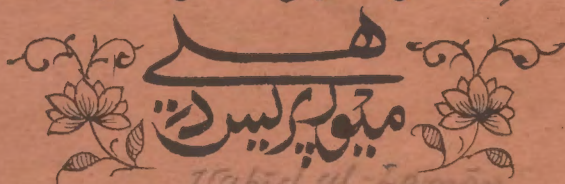 میور پریس دہلی